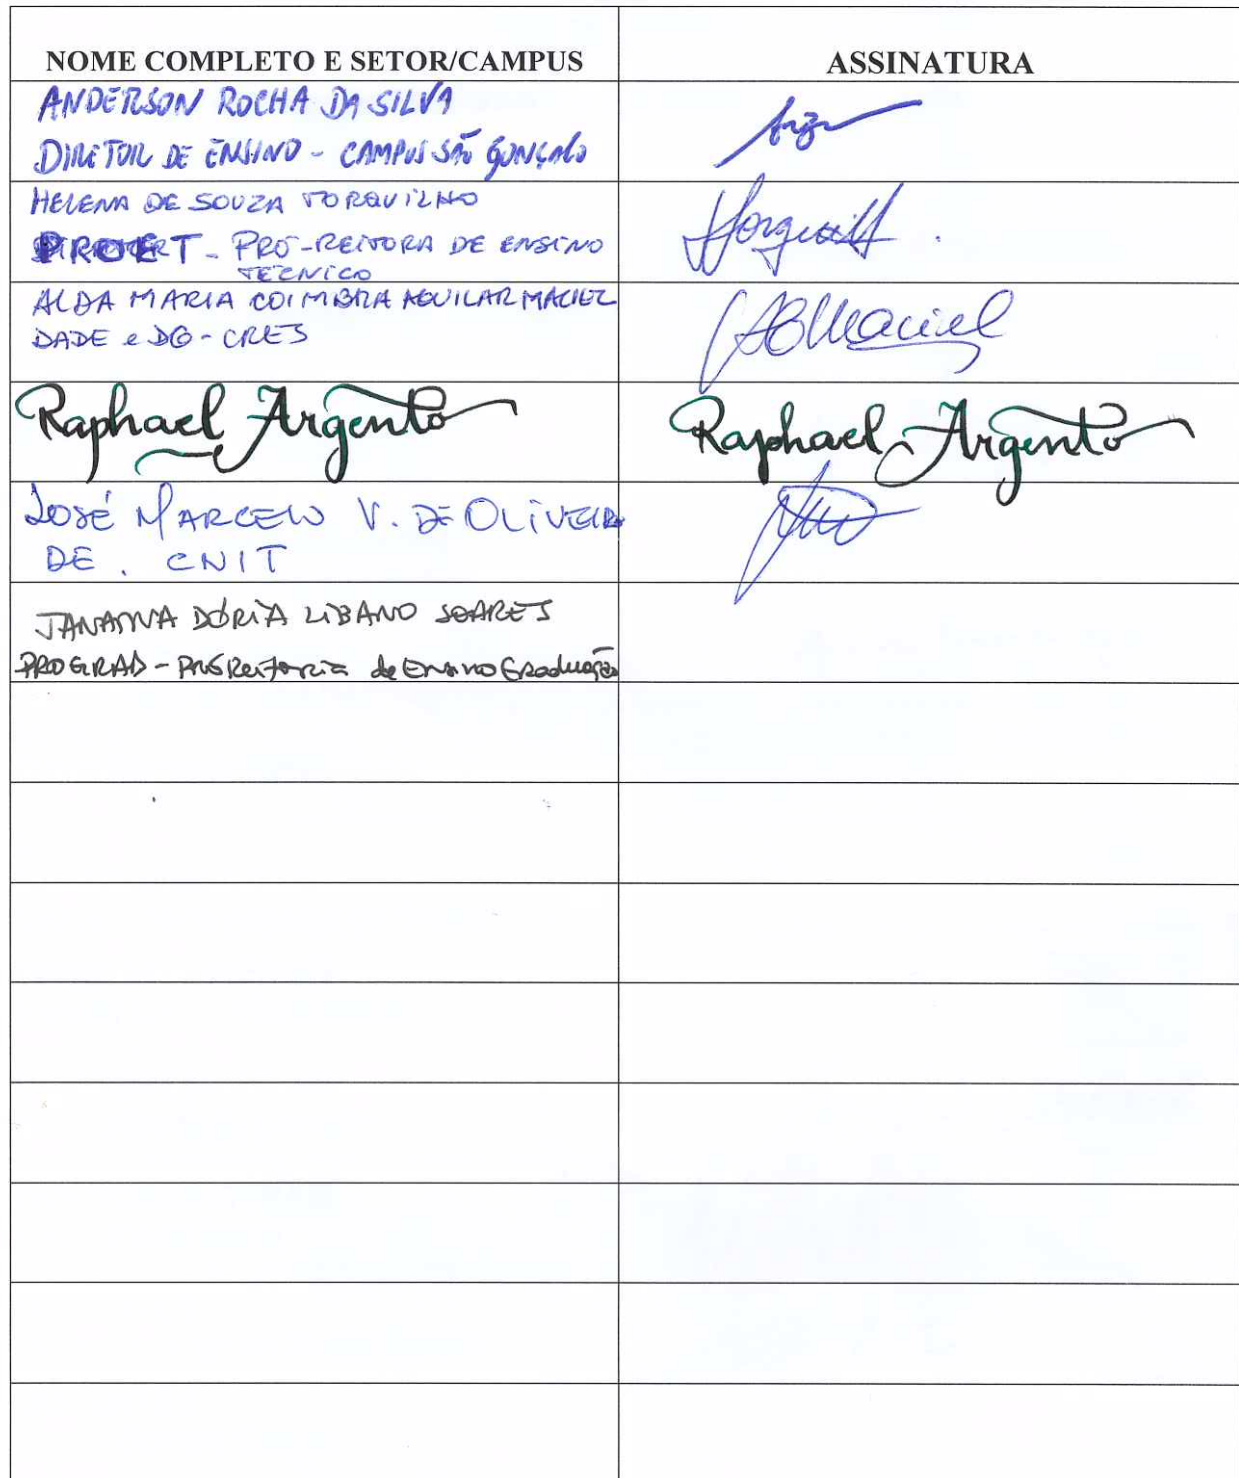 NOME COMPLETO E SETOR/CAMPUS
ASSINATURA
ANDERSON ROCHA DA SILVA
DIRETOR DE ENSINO - CAMPUS SÃO GONÇALO
HELENA DE SOUZA TORQUILHO
PROET - PRÓ-REITORA DE ENSINO
TÉCNICO
ALDA MARIA COIMBRA AGUILAR MACIEL
DADE e DG - CRES
ABMaciel
Raphael Argento
Raphael Argento
JOSÉ MARCELO V. DE OLIVEIRA
DE. CNIT
JANAINA DÓRIA LIBANO SOARES
PROGRAD - Pró Reitoria de Ensino Graduação